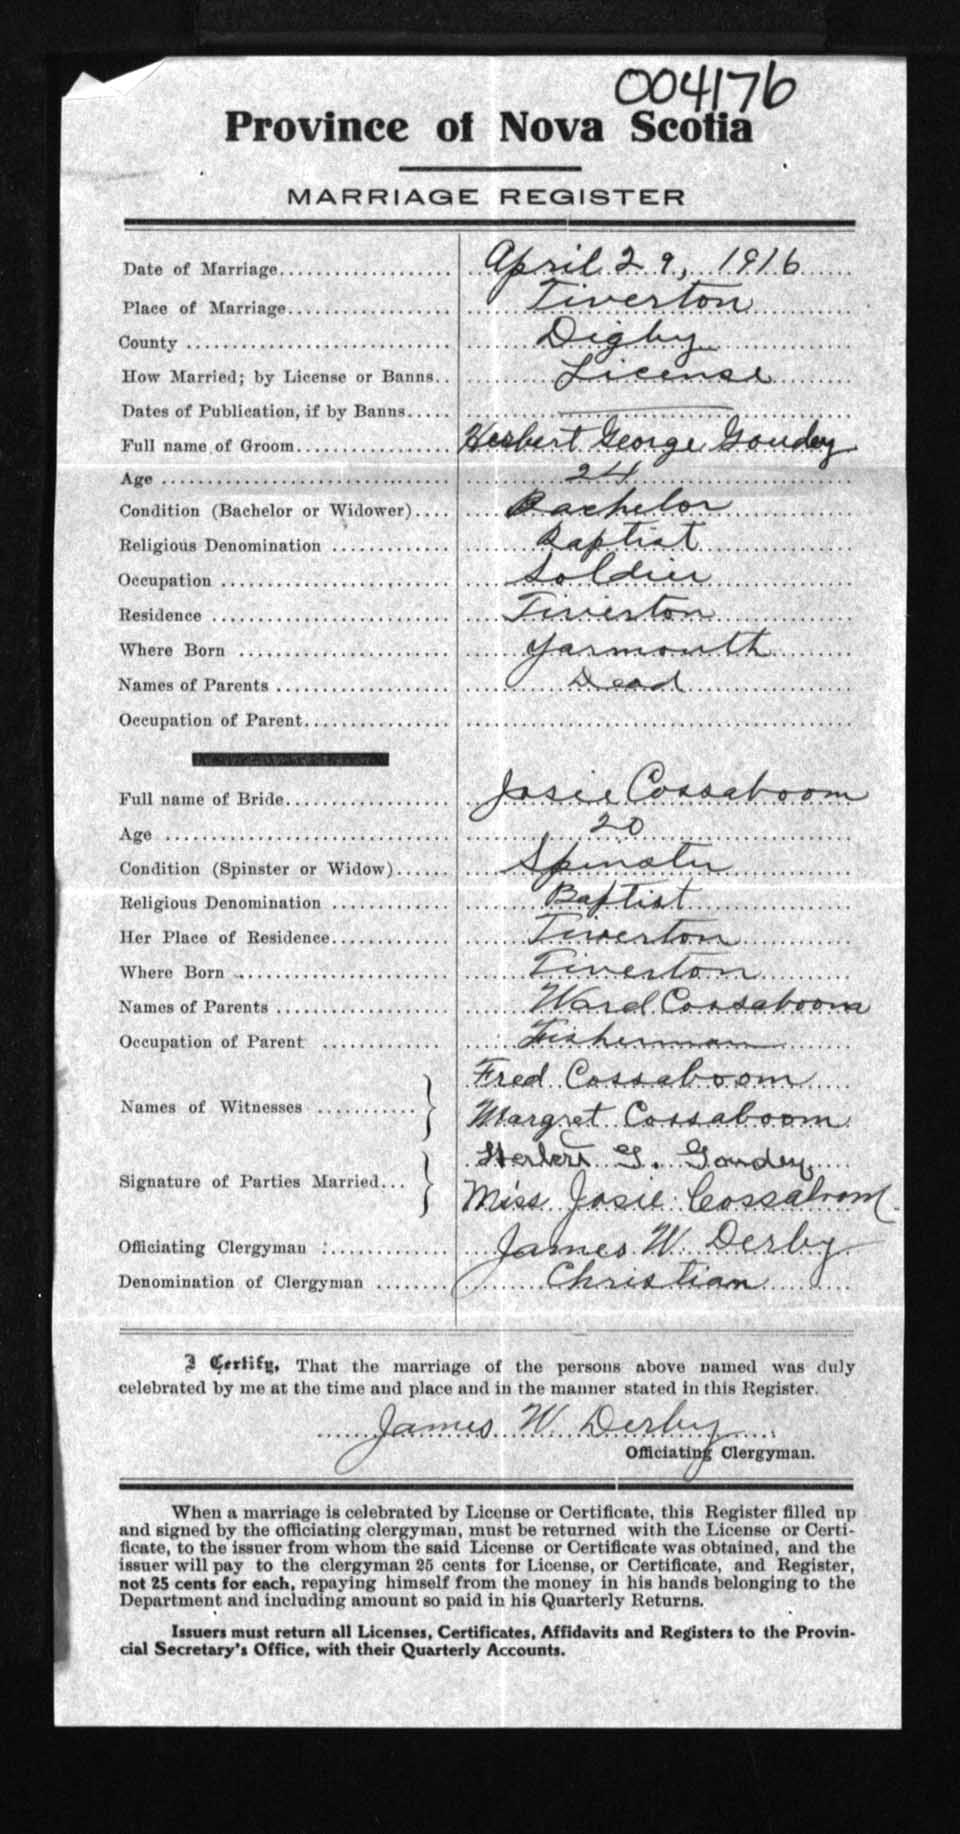 004176
Province of Nova Scotia
MARRIAGE REGISTER
Date of Marriage................... April 29, 1916
Place of Marriage.................. Tiverton
County ............................ Digby
How Married; by License or Banns.. License
Dates of Publication, if by Banns.....
Full name of Groom................. Herbert George Goudey
Age ............................... 24
Condition (Bachelor or Widower).... Bachelor
Religious Denomination ............ Baptist
Occupation ........................ Soldier
Residence ......................... Tiverton
Where Born ....................... Yarmouth
Names of Parents .................. Dead
Occupation of Parent................
Full name of Bride.................. Josie Cossaboom
Age ............................... 20
Condition (Spinster or Widow)...... Spinster
Religious Denomination ............ Baptist
Her Place of Residence............. Tiverton
Where Born ........................ Tiverton
Names of Parents .................. Ward Cossaboom
Occupation of Parent ............. Fisherman
Fred Cossaboom
Names of Witnesses ...........
Margret Cossaboom
Herbert G. Goudey
Signature of Parties Married...
Miss Josie Cossaboom
Officiating Clergyman :............. James W. Derby
Denomination of Clergyman ........ Christian
I Certify, That the marriage of the persons above named was duly
celebrated by me at the time and place and in the manner stated in this Register.
James W Derby
Officiating Clergyman.
When a marriage is celebrated by License or Certificate, this Register filled up
and signed by the officiating clergyman, must be returned with the License or Certi-
ficate, to the issuer from whom the said License or Certificate was obtained, and the
issuer will pay to the clergyman 25 cents for License, or Certificate, and Register,
not 25 cents for each, repaying himself from the money in his hands belonging to the
Department and including amount so paid in his Quarterly Returns.
Issuers must return all Licenses, Certificates, Affidavits and Registers to the Provin-
cial Secretary's Office, with their Quarterly Accounts.